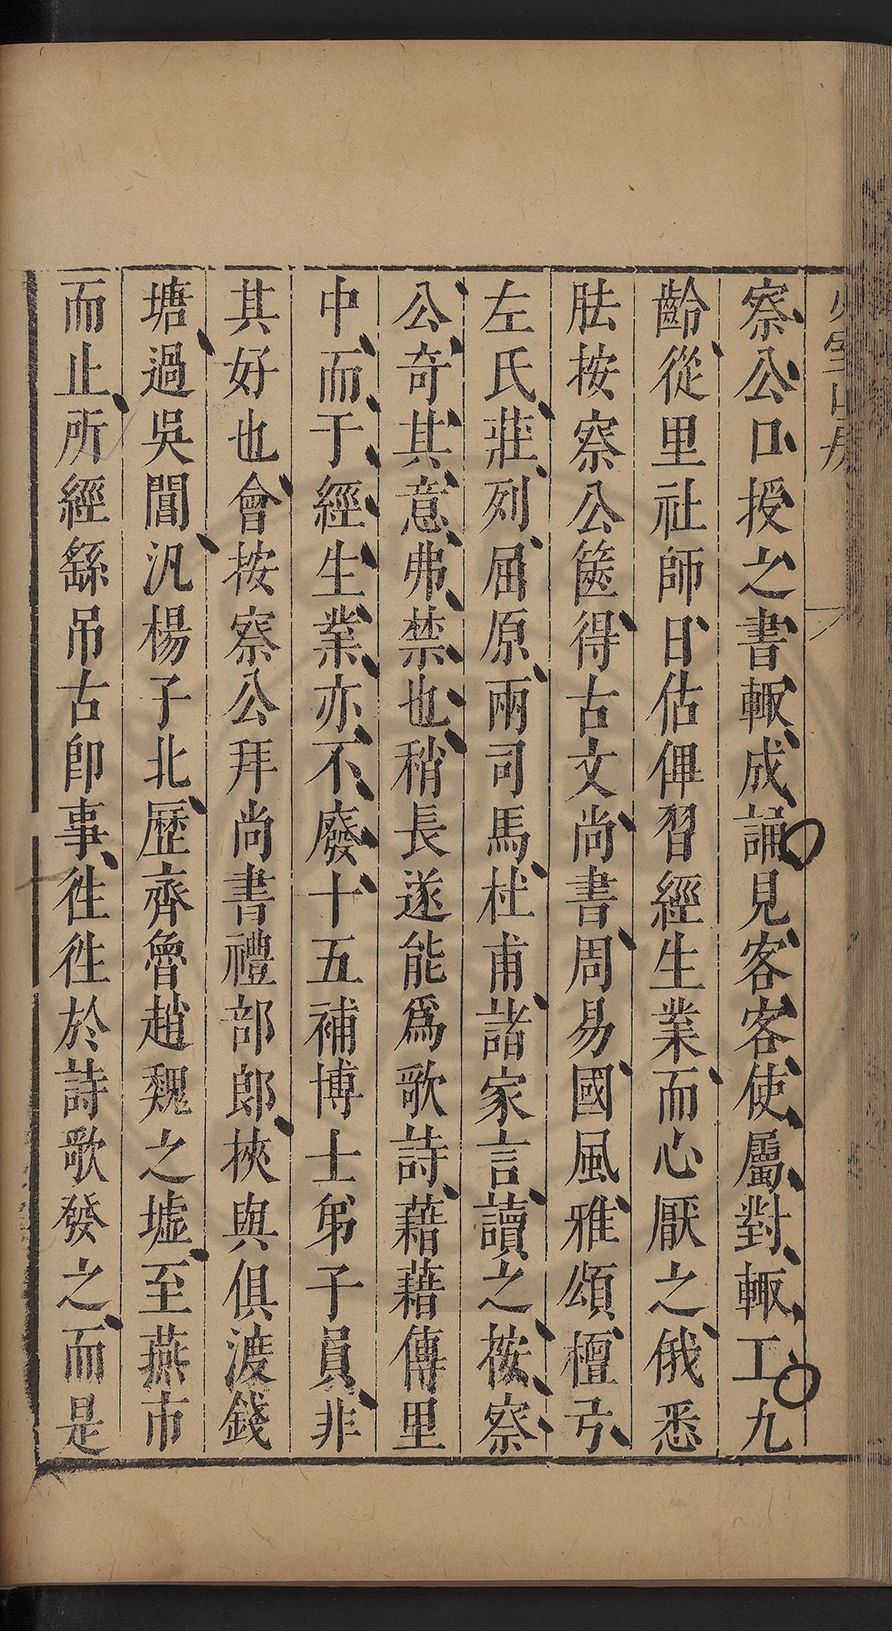 察公口授之書輙成誦見客客使屬對輙工九
齡從里社師日佔俾習經生業而心厭之俄悉
胠按察公篋得古文尚書周易國風雅頌檀弓
左氏莊列屈原兩司馬杜甫諸家言讀之按察
公奇其意弗禁也稍長遂能爲歌詩藉藉傳里
中而于經生業亦不廢十五補博士弟子員非
其好也會按察公拜尚書禮部郎挾與俱渡錢
塘過吳閶汎楊子北歷齊魯趙魏之墟至燕市
而止所經繇吊古卽事徃徃於詩歌發之而是